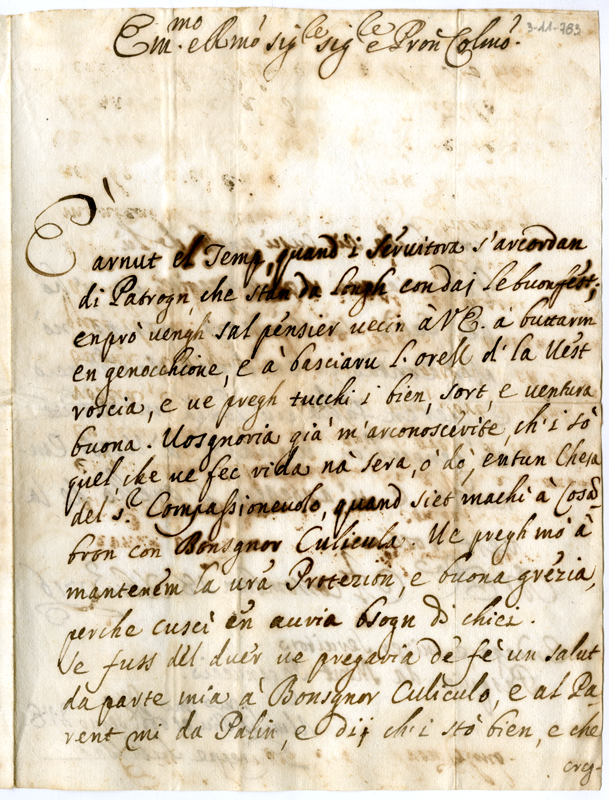 Em.mo e Rmo sig.le sig.le e Pron Colmo.
3-11-783
È arnut el Temp, quand i servitora s'arcordan
di Patrogn, che stan da longh con daj le buon fest;
en prò vengh sal pensier vecin à VE. à buttarm
en genocchione, e à basciaru l'orell d' la Vest
roscia, e ve pregh tucchi i bien, sort, e ventura
buona. Vosgnoria già m'arconoscévite, ch'i sò
quel che ve fec vida nà sera, ò dò, entun Chesa
del s.r Compassionevolo, quand siet machì à Cosa-
bron con Bonsgnor Culicula. Ve pregh mò à
mantenem la vra Prottezion, e buona grézia,
perche cuscì en auria bsogn di chici.
Se fuss del duer ve pregavia dè fè un salut
da parte mia à Bonsgnor Culiculo, e al Pa-
rent mi da Palin, e dij ch'i stò bien, e che